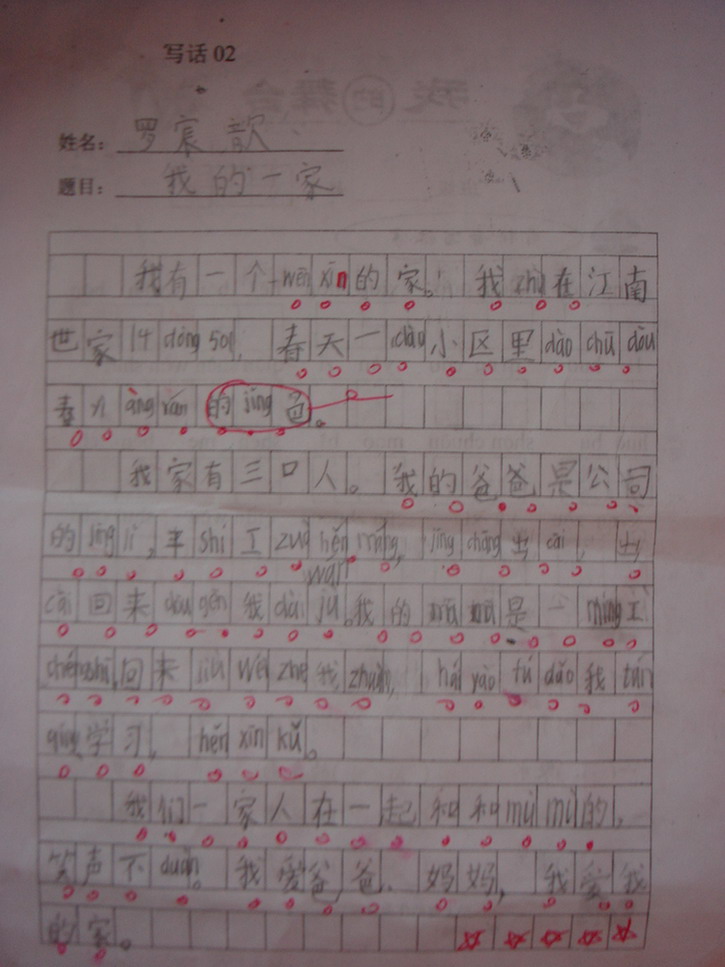 写话 02
姓名: 罗宸歆
题目: 我的一家
我有一个wēn xīn的家。我zhù在江南
世家14 dòng 501, 春天一dào小区里dào chū dōu
春 的jǐng色。
我家有三口人。我的爸爸是公司
的jīng lǐ, 平shí工zuò hěn máng, jīng cháng出cāi, 出
cāi回来dōu gěi我dài 。我的mā mā是一míng工
chéng shī, 回来jiù wéi zhe我zhuàn, hái yào fú dǎo我tán
qíng学习, hěn xīn kǔ。
我们一家人在一起和和mù mù的,
笑声不duàn。我爱爸爸、妈妈, 我爱我
的家。